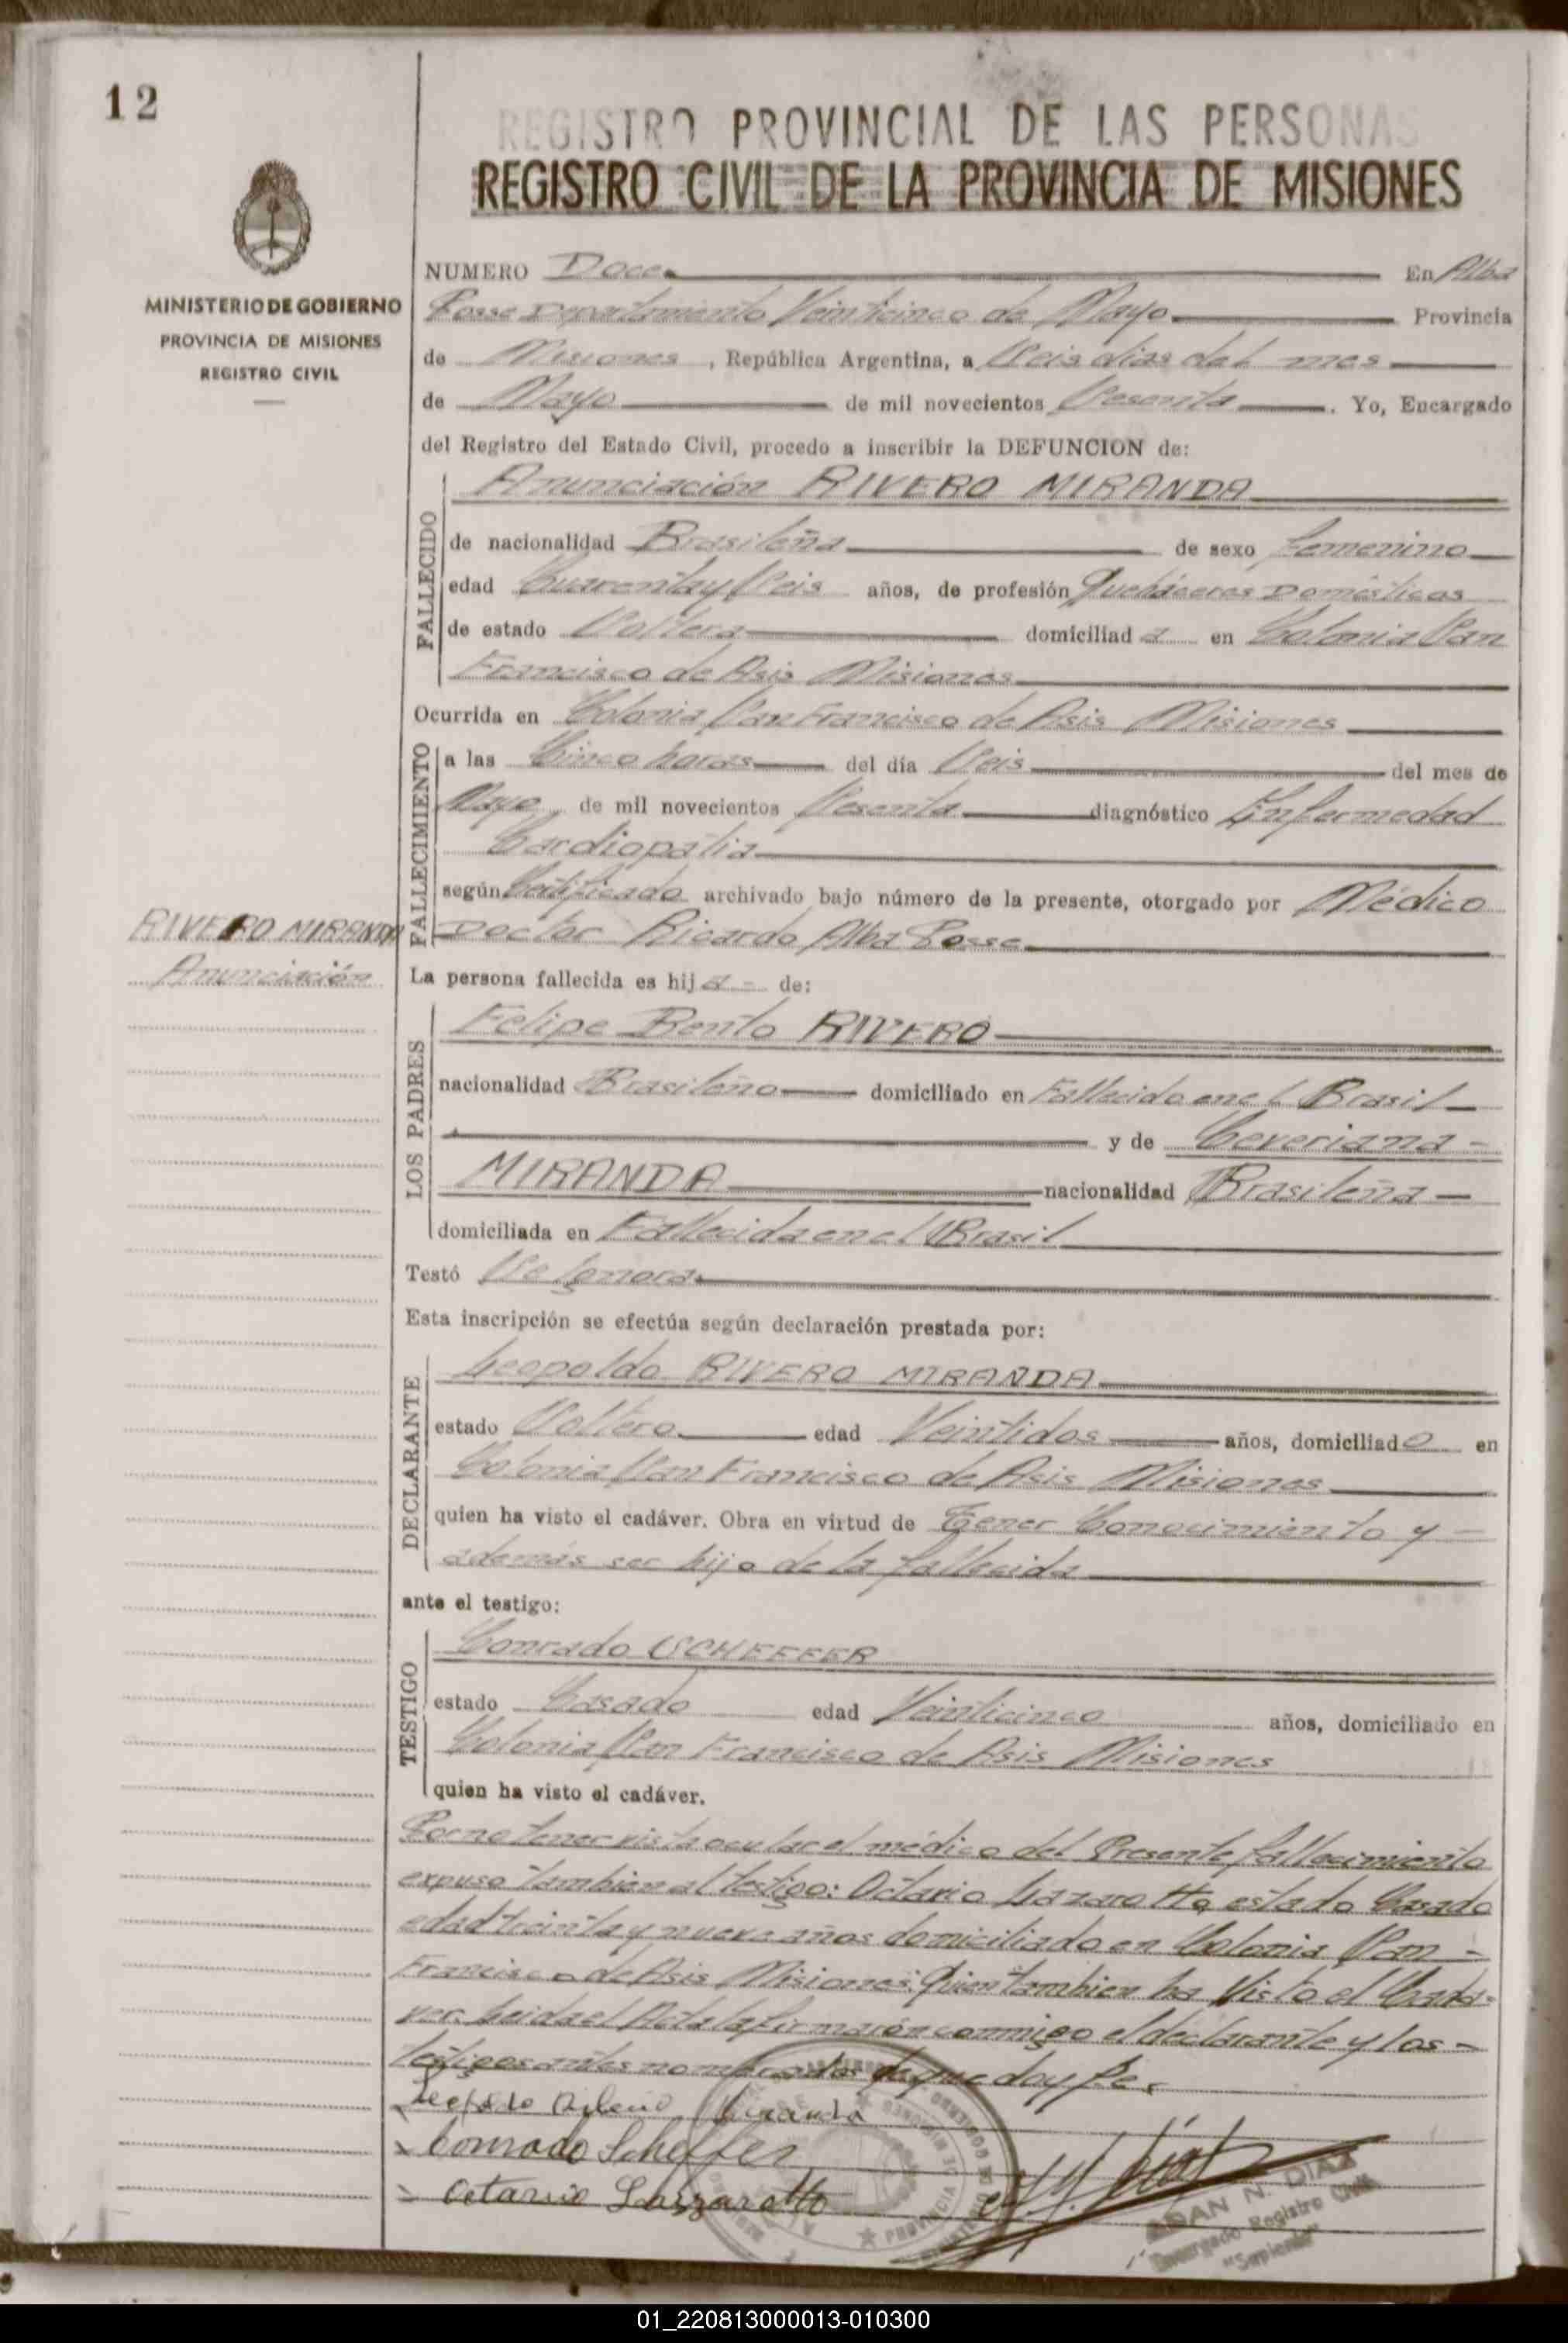 12
REGISTRO PROVINCIAL DE LAS PERSONAS
REGISTRO CIVIL DE LA PROVINCIA DE MISIONES
MINISTERIO DE GOBIERNO
PROVINCIA DE MISIONES
REGISTRO CIVIL
NUMERO Doce En Alba
Posse Departamento Veinticinco de Mayo Provincia
de Misiones, República Argentina, a Seis dias del mes
de Mayo de mil novecientos Sesenta. Yo, Encargado
del Registro del Estado Civil, procedo a inscribir la DEFUNCION de:
FALLECIDO
Anunciación RIVERO MIRANDA
de nacionalidad Brasileña de sexo femenino
edad Cuarentay Seis años, de profesión Quehaceres Domésticos
de estado Soltera domiciliad a en Colonia San
Francisco de Asis Misiones
Ocurrida en Colonia San Francisco de Asis Misiones
FALLECIMIENTO
a las Cinco horas del día Seis del mes de
Mayo de mil novecientos Sesenta diagnóstico Enfermedad
Cardiopatia
según Certificado archivado bajo número de la presente, otorgado por Médico
Doctor Ricardo Alba Posse
RIVERO MIRANDA
Anunciación
La persona fallecida es hij a de:
LOS PADRES
Felipe Bento RIVERO
nacionalidad Brasileño domiciliado en Fallecido en el Brasil
y de Ceveriana
MIRANDA nacionalidad Brasileña
domiciliada en Fallecida en el Brasil
Testó Se Ignora
Esta inscripción se efectúa según declaración prestada por:
DECLARANTE
Leopoldo RIVERO MIRANDA
estado Soltero edad Veintidos años, domiciliad o en
Colonia San Francisco de Asis Misiones
quien ha visto el cadáver. Obra en virtud de Tener Conocimiento y
además ser hijo de la fallecida
ante el testigo:
TESTIGO
Conrado SCHEFFER
estado Casado edad Veinticinco años, domiciliado en
Colonia San Francisco de Asis Misiones
quien ha visto el cadáver.
Por no tener vista ocular el médico del Presente fallecimiento
expuso tambien al testigo: Octavio Lazarotto, estado Casado
edad treinta y nueve años domiciliado en Colonia San -
Francisco de Asis Misiones: Quien tambien ha Visto el Cada-
ver. Leida el Acta la firmarón conmigo el declarante y los -
testigos antes nombrados de que doy fe.
Miranda
Conrado Scheffer
Octavio Lazzarotto
ADAN N. DIAZ
Encargado Registro Civil
01_220813000013-010300